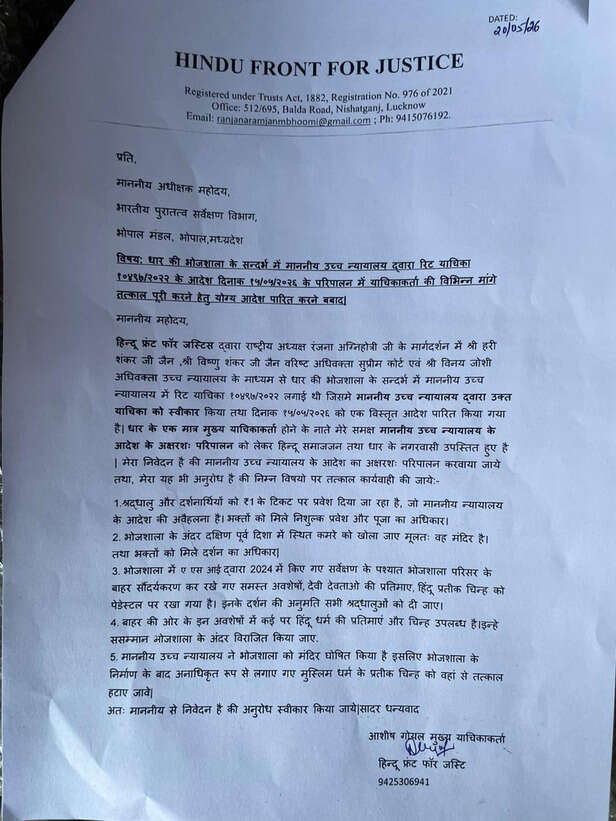 DATED:
20/05/26
HINDU FRONT FOR JUSTICE
Registered under Trusts Act, 1882, Registration No. 976 of 2021
Office: 512/695, Balda Road, Nishatganj, Lucknow
Email: ranjanaramjanmbhoomi@gmail.com ; Ph: 9415076192.
प्रति,
माननीय अधीक्षक महोदय,
भारतीय पुरातत्व सर्वेक्षण विभाग,
भोपाल मंडल, भोपाल,मध्यप्रदेश
विषय: धार की भोजशाला के सन्दर्भ में माननीय उच्च न्यायालय द्वारा रिट याचिका
१०४९७/२०२२ के आदेश दिनाक १५/०५/२०२६ के परिपालन में याचिकाकर्ता की विभिन्न मांगे
तत्काल पूरी करने हेतु योग्य आदेश पारित करने बबाद|
माननीय महोदय,
हिन्दू फ्रंट फॉर जस्टिस द्वारा राष्ट्रीय अध्यक्ष रंजना अग्निहोत्री जी के मार्गदर्शन में श्री हरी
शंकर जी जैन ,श्री विष्णु शंकर जी जैन वरिष्ट अधिवक्ता सुप्रीम कोर्ट एवं श्री विनय जोशी
अधिवक्ता उच्च न्यायालय के माध्यम से धार की भोजशाला के सन्दर्भ में माननीय उच्च
न्यायालय में रिट याचिका १०४९७/२०२२ लगाई थी जिसमे माननीय उच्च न्यायालय द्वारा उक्त
याचिका को स्वीकार किया तथा दिनाक १५/०५/२०२६ को एक विस्तृत आदेश पारित किया गया
है| धार के एक मात्र मुख्य याचिकाकर्ता होने के नाते मेरे समक्ष माननीय उच्च न्यायालय के
आदेश के अक्षरशः परिपालन को लेकर हिन्दू समाजजन तथा धार के नगरवासी उपस्तित हुए है
| मेरा निवेदन है की माननीय उच्च न्यायालय के आदेश का अक्षरशः परिपालन करवाया जाये
तथा, मेरा यह भी अनुरोध है की निम्न विषयो पर तत्काल कार्यवाही की जाये:-
1.श्रद्धालु और दर्शनार्थियों को ₹1 के टिकट पर प्रवेश दिया जा रहा है, जो माननीय न्यायालय
के आदेश की अवैहलना है। भक्तों को मिले निशुल्क प्रवेश और पूजा का अधिकार।
2. भोजशाला के अंदर दक्षिण पूर्व दिशा में स्थित कमरे को खोला जाए मूलतः वह मंदिर है।
तथा भक्तों को मिले दर्शन का अधिकार|
3. भोजशाला में ए एस आई द्वारा 2024 में किए गए सर्वेक्षण के पश्यात भोजशाला परिसर के
बाहर सौंदर्यकरण कर रखे गए समस्त अवशेषों, देवी देवताओ की प्रतिमाए, हिंदू प्रतीक चिन्ह को
पेडेस्टल पर रखा गया है। इनके दर्शन की अनुमति सभी श्रद्धालुओं को दी जाए।
4. बाहर की ओर के इन अवशेषों में कई पर हिंदू धर्म की प्रतिमाएं और चिन्ह उपलब्ध है।इन्हे
ससम्मान भोजशाला के अंदर विराजित किया जाए.
5. माननीय उच्च न्यायालय ने भोजशाला को मंदिर घोषित किया है इसलिए भोजशाला के
निर्माण के बाद अनाधिकृत रूप से लगाए गए मुस्लिम धर्म के प्रतीक चिन्ह को वहां से तत्काल
हटाए जावे|
अतः माननीय से निवेदन है की अनुरोध स्वीकार किया जाये|सादर धन्यवाद
आशीष गोयल मुख्य याचिकाकर्ता
हिन्दू फ्रंट फॉर जस्टि
9425306941